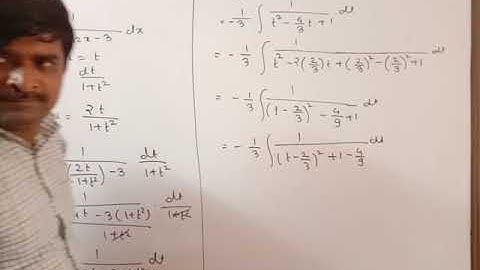 1
2x-3 dx
x = t
dt
1+t²
= 2t
1+t²
1
(2t
1+t²)-3 dt
1+t²
1
t-3(1+t²) dt
1+t² 1+t²
1 dt
= -1/3 ∫ 1/(t² - 4/3 t + 1) dt
= -1/3 ∫ 1/(t² - 2(2/3)t + (2/3)² - (2/3)² + 1) dt
= -1/3 ∫ 1/((t - 2/3)² - 4/9 + 1) dt
= -1/3 ∫ 1/((t - 2/3)² + 1 - 4/9) dt